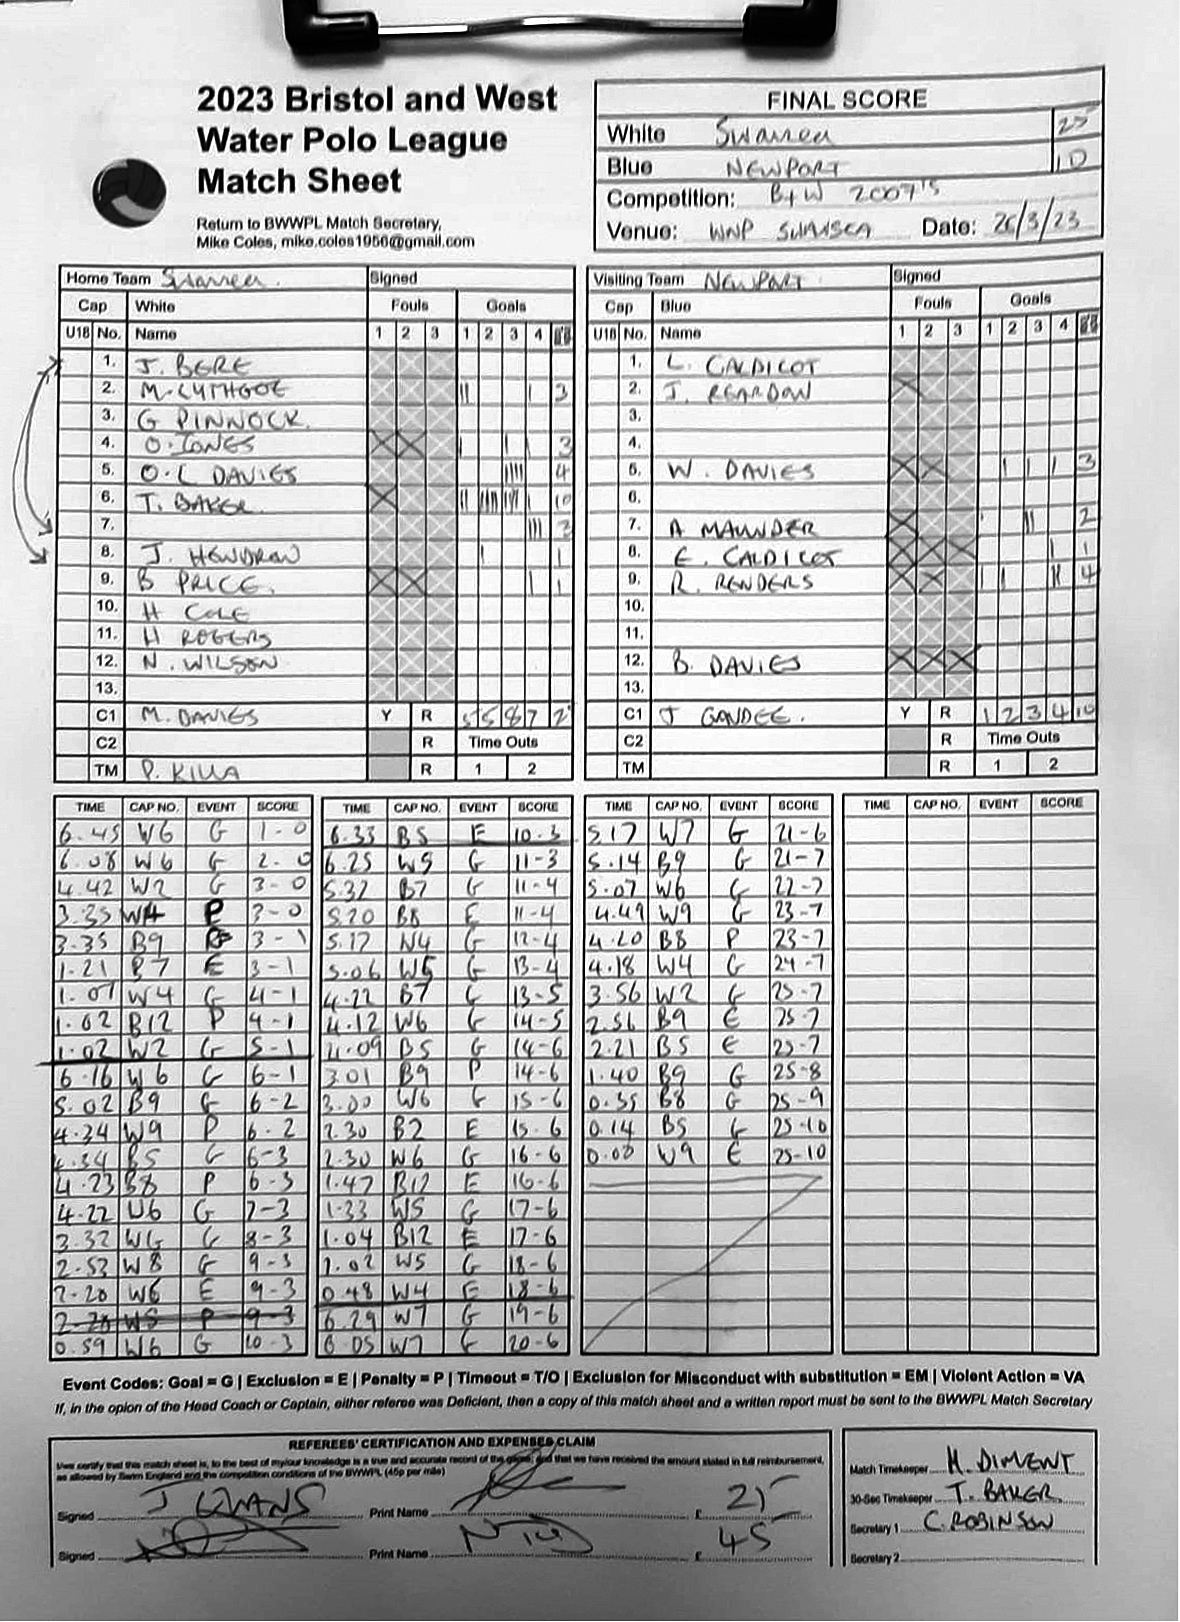 2023 Bristol and West
Water Polo League
Match Sheet
Return to BWWPL Match Secretary,
Mike Coles, mike.coles1956@gmail.com
FINAL SCORE
White Swansea 25
Blue NEWPORT 10
Competition: B+W 2007's
Venue: WNP SWANSEA Date: 26/3/23
Home Team Swansea Signed
Cap White Fouls Goals
U18 No. Name 1 2 3 1 2 3 4
1. J. BERE
2. M. LYTHGOE 3
3. G PINNOCK
4. O. JONES 3
5. O. C DAVIES 4
6. T. BAKER 10
7. 3
8. J. HENDRON 1
9. B PRICE. 1
10. H COLE
11. H ROGERS
12. N. WILSON
13.
C1 M. DAVIES Y R 5 5 8 7
C2 R Time Outs
TM P. KILLA R 1 2
Visiting Team NEWPORT Signed
Cap Blue Fouls Goals
U18 No. Name 1 2 3 1 2 3 4
1. L. CALDICOT
2. J. REARDON
3.
4.
5. W. DAVIES 3
6.
7. A MAUNDER 2
8. E. CALDICOT 1
9. R. RENDERS 4
10.
11.
12. B. DAVIES
13.
C1 J GANDEE. Y R 1 2 3 4 10
C2 R Time Outs
TM R 1 2
TIME CAP NO. EVENT SCORE
6.45 W6 G 1-0
6.08 W6 G 2-0
4.42 W2 G 3-0
3.35 W4 P 3-0
3.35 B9 3-1
1.21 B7 E 3-1
1.07 W4 G 4-1
1.02 B12 P 4-1
1.02 W2 G 5-1
6.16 W6 G 6-1
5.02 B9 G 6-2
4.34 W9 P 6-2
4.34 B5 G 6-3
4.23 B8 P 6-3
4.22 W6 G 7-3
3.32 W6 G 8-3
2.53 W8 G 9-3
2.20 W6 E 9-3
2.20 W5 P 9-3
0.59 W6 G 10-3
TIME CAP NO. EVENT SCORE
6.33 B5 E 10-3
6.25 W5 G 11-3
5.32 B7 G 11-4
5.20 B8 E 11-4
5.17 W4 G 12-4
5.06 W5 G 13-4
4.22 B7 G 13-5
4.12 W6 G 14-5
4.09 B5 G 14-6
3.01 B9 P 14-6
3.00 W6 G 15-6
2.30 B2 E 15-6
2.30 W6 G 16-6
1.47 B12 E 16-6
1.33 W5 G 17-6
1.04 B12 E 17-6
1.02 W5 G 18-6
0.48 W4 E 18-6
6.29 W7 G 19-6
6.05 W7 G 20-6
TIME CAP NO. EVENT SCORE
5.17 W7 G 21-6
5.14 B9 G 21-7
5.07 W6 G 22-7
4.49 W9 G 23-7
4.20 B8 P 23-7
4.18 W4 G 24-7
3.56 W2 G 25-7
2.56 B9 E 25-7
2.21 B5 E 25-7
1.40 B9 G 25-8
0.35 B8 G 25-9
0.14 B5 G 25-10
0.00 W9 E 25-10
TIME CAP NO. EVENT SCORE
Event Codes: Goal = G | Exclusion = E | Penalty = P | Timeout = T/O | Exclusion for Misconduct with substitution = EM | Violent Action = VA
If, in the opion of the Head Coach or Captain, either referee was Deficient, then a copy of this match sheet and a written report must be sent to the BWWPL Match Secretary
REFEREES' CERTIFICATION AND EXPENSES CLAIM
I/we certify that this match sheet is, to the best of my/our knowledge is a true and accurate record of the game, and that we have received the amount stated in full reimbursement,
as allowed by Swim England and the competition conditions of the BWWPL (45p per mile)
Signed J EVANS Print Name £ 25
Signed Print Name £ 45
Match Timekeeper H. DIMENT
30-Sec Timekeeper T. BAKER
Secretary 1 C. ROBINSON
Secretary 2